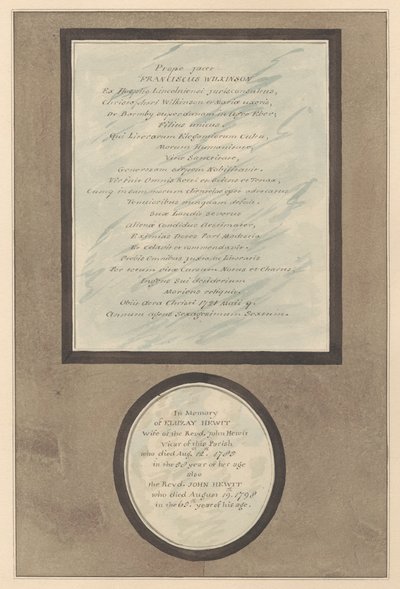 Prope jacet
FRANCISCUS WILKINSON
Ex Hospitio Lincolniensi jurisconsultus,
Christophori Wilkinson et Mariæ uxoris,
De Barmby super dunam in agro Ebor:
Filius unicus.
Qui Literarum Elegantiorum Cultu,
Morum Humanitate,
Vitæ Sanctitate,
Generosam stirpem Nobilitavit.
Omnis Recti
Tenuioribus nunquam defuit.
Suæ laudis severus
Alienæ Candidus Æstimator,
Eximias Dotes Pari Modestia
Et Celavit et commendavit.
Omnibus juxta
Per totum vitæ Cursum Carus et Charus,
Ingens Sui desiderium
Moriens reliquit.
Obiit Æra Christi Maii 9.
Annum agens Sexagesimum Sextum.
In Memory
of ELIZAY HEWIT
Wife of the Revd. John Hewit
Vicar of this Parish
who died Aug. 12th. 1785
in the year of her age
also
the Revd. JOHN HEWIT
who died August 19. 1798
in the year of his age.